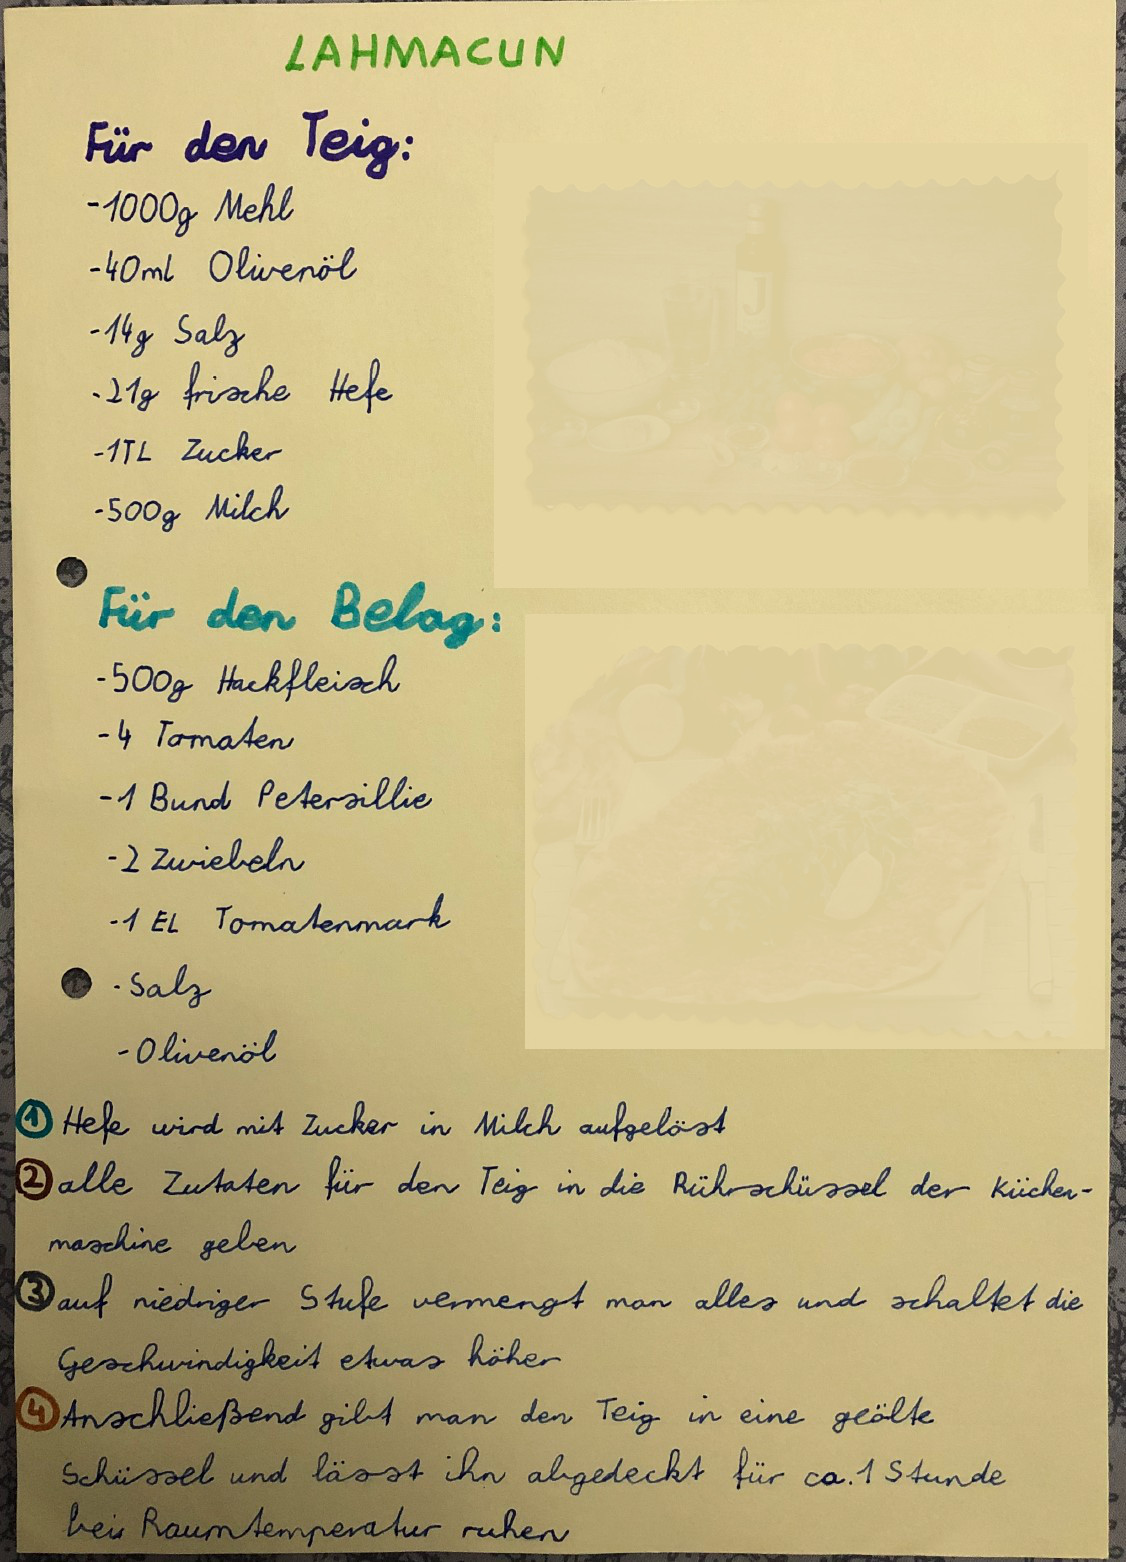 LAHMACUN
Für den Teig:
-1000g Mehl
-40ml Olivenöl
-14g Salz
-21g frische Hefe
-1TL Zucker
-500g Milch
Für den Belag:
-500g Hackfleisch
-4 Tomaten
-1 Bund Petersillie
-2 Zwiebeln
-1 EL Tomatenmark
-Salz
-Olivenöl
1 Hefe wird mit Zucker in Milch aufgelöst
2 alle Zutaten für den Teig in die Rührschüssel der Küchen-
maschine geben
3 auf niedriger Stufe vermengt man alles und schaltet die
Geschwindigkeit etwas höher
4 Anschließend gibt man den Teig in eine geölte
Schüssel und lässt ihn abgedeckt für ca. 1 Stunde
bei Raumtemperatur ruhen